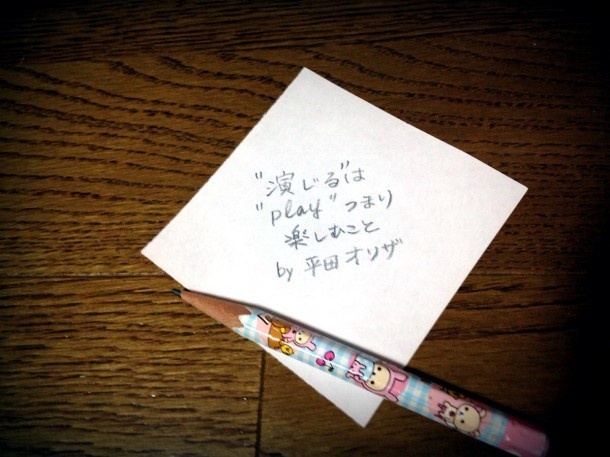 "演じる"は
"play"つまり
楽しむこと
by 平田オリザ